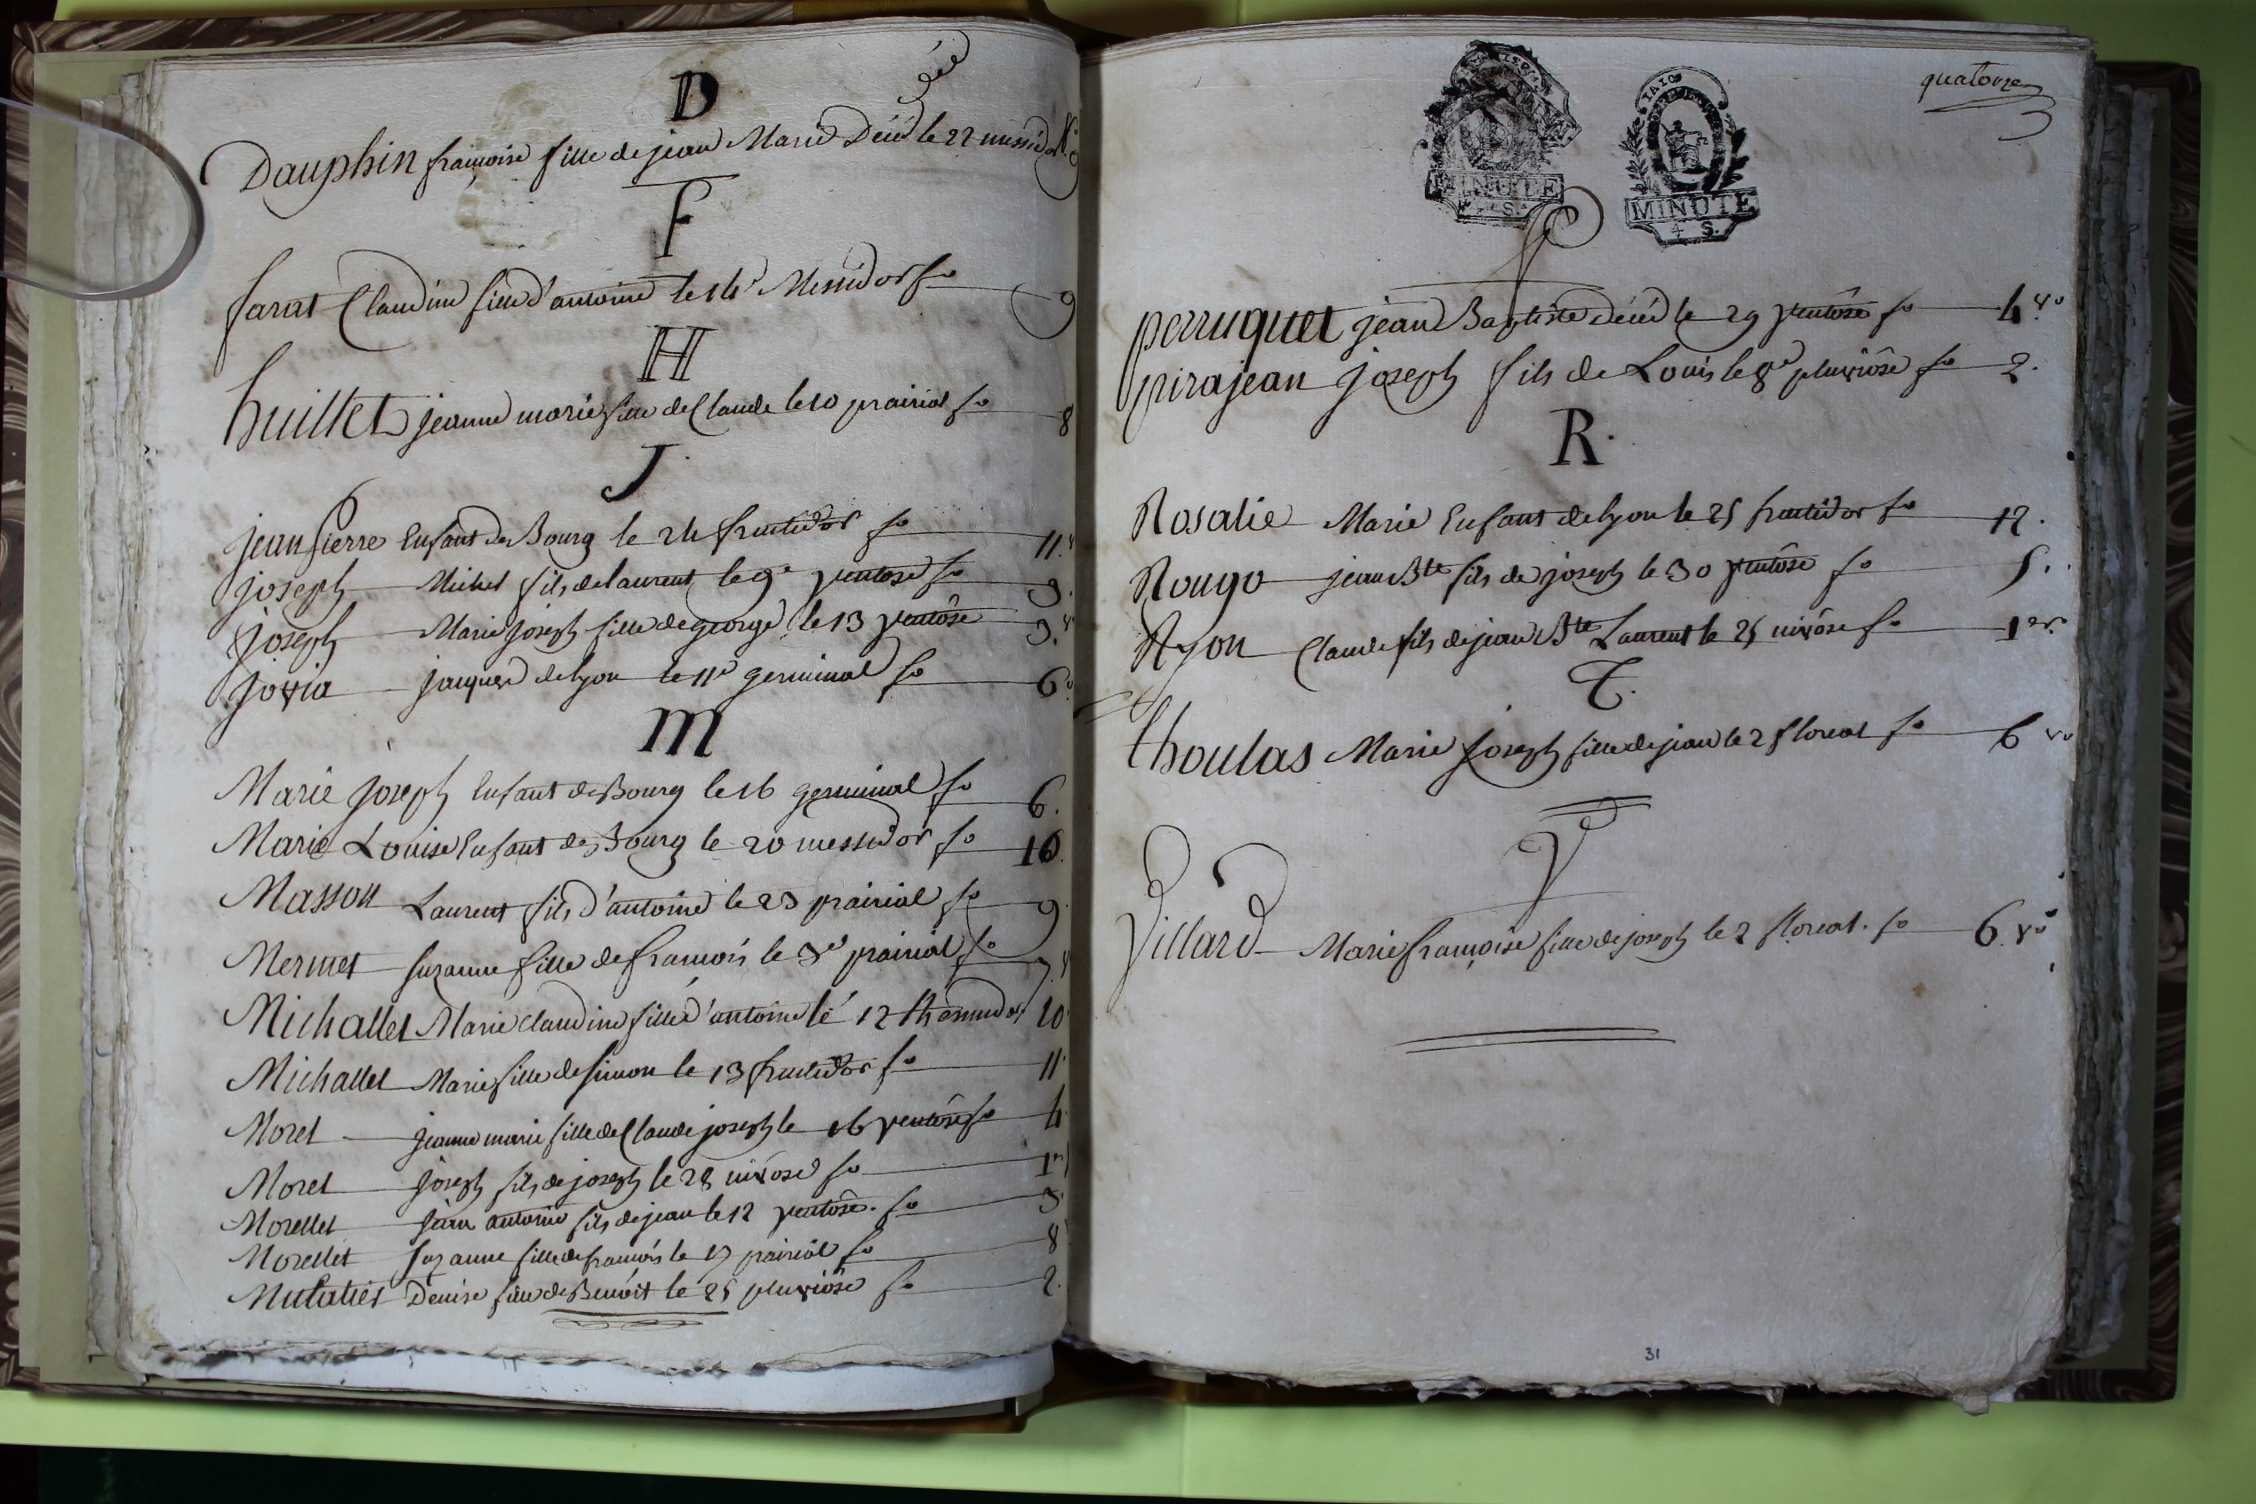 D
Dauphin françoise fille de jean Marie Décéd le 22 messidor
F
farat Claudine fille d'antoine le 14e Messidor fo 9
H
huillet jeanne marie fille de Claude le 10 prairial fo 8
J.
jean pierre Enfant de Bourg le 24 fructidor fo 11.
joseph Michel fils de laurent le 9e ventose fo 3.
joseph Marie joseph fille de george le 13 ventôse 3.
jovia jacques de lyon le 11e germinal fo 6
M
Marie joseph Enfant de Bourg le 16 germinal fo 6.
Marie Louise Enfant de Bourg le 20 messidor fo 10.
Masson Laurent fils d'antoine le 23 prairial fo 9
Mermet suzanne fille de françois le 3e prairial fo 7
Michallet Marie claudine fille d'antoine le 12 thermidor 10
Michallet Marie fille de simon le 13 fructidor fo 11
Moret jeanne marie fille de Claude joseph le 16 ventôse fo 4
Moret joseph fils de joseph le 28 nivôse fo 1er
Morellet jean antoine fils de jean le 12 ventôse. fo 3
Morellet suzanne fille de françois le 17 prairial fo 8
Denise fille de Benoit le 25 pluviôse fo 2.
quatorze
MINUTE
S.
MINUTE
4 S.
P
perruquet jean Baptiste Décéd le 29 ventôse fo 4 vo
pirajean joseph fils de Louis le 8e pluviôse fo 2.
R.
Rosalie Marie Enfant de lyon le 25 fructidor fo 12.
Rougo jean Bte fils de joseph le 30 ventôse fo 5.
Ryon Claude fils de jean Bte Laurent le 25 nivôse fo 1er
T.
thoulas Marie joseph fille de jean le 2 floreal fo 6 vo
V
Villard Marie françoise fille de joseph le 2 floreal. fo 6. vo
31